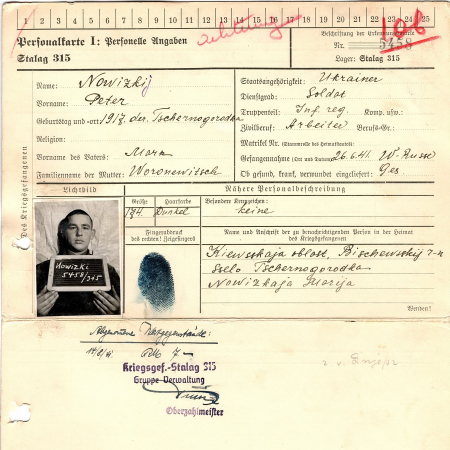 1 2 3 4 5 6 7 8 9 10 11 12 13 14 15 16 17 18 19 20 21 22 23 24 25
Personalkarte I: Personelle Angaben
Beschriftung der Erkennungsmarke
Stalag 315
Nr. 5458
Lager: Stalag 315
Des Kriegsgefangenen
Name: Nowizkij
Staatsangehörigkeit: Ukrainer
Vorname: Peter
Dienstgrad: Soldat
Truppenteil: Inf. reg. Komp. usw.:
Geburtstag und -ort: 1917, der. Tschernogorodka
Zivilberuf: Arbeiter Berufs-Gr.:
Religion:
Matrikel Nr. (Stammrolle des Heimatstaates):
Vorname des Vaters: Mark
Gefangennahme (Ort und Datum): 26.6.41. W-Russl
Familienname der Mutter: Woronewitsch
Ob gesund, krank, verwundet eingeliefert: Ges
Lichtbild
Nähere Personalbeschreibung
Größe Haarfarbe
Besondere Kennzeichen:
174 Dunkel
keine
Fingerabdruck
des rechten! Zeigefinger!
Name und Anschrift der zu benachrichtigenden Person in der Heimat
des Kriegsgefangenen
Nowizki
5458/315
Kiewskaja oblost, Bischewskij r-n
Selo Tschernogorodka
Nowizkaja Marija
Wenden!
Kriegsgef.-Stalag 315
Gruppe Verwaltung
Oberzahlmeister